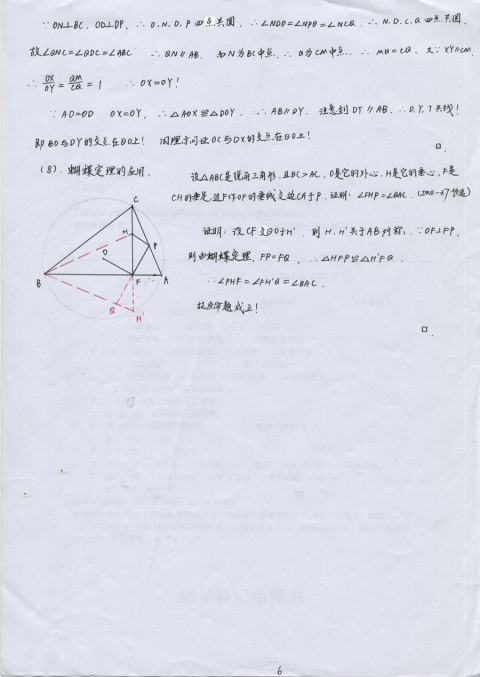 ∵ ON⊥BC, OD⊥DP, ∴ O, N, D, P 四点共圆, ∴ ∠NDO=∠NPO=∠NCQ, ∴ N, D, C, Q 四点共圆,
故∠QNC=∠QDC=∠ABC ∴ QN∥AB. 而N为BC中点, ∴ Q为CM中点, ∴ MQ=CQ. 又∵ XY∥CM,
∴ OX/OY = QM/CQ = 1 ∴ OX=OY!
∵ AO=OD OX=OY, ∴ △AOX≌△DOY, ∴ AB∥DY. 注意到 DT∥AB, ∴ D, Y, T共线!
即BO与DY的交点在⊙O上! 同理亦可证OC与DX的交点在⊙O上!
□.
(8). 蝴蝶定理的应用.
设△ABC是锐角三角形, 且BC>AC, O是它的外心, H是它的垂心, F是
CH的垂足, 过F作OF的垂线交边CA于P. 证明: ∠FHP=∠BAC. (IMO-37预选)
证明: 设CF交⊙O于H', 则H, H'关于AB对称, ∵ OF⊥FP,
则由蝴蝶定理, FP=FQ, ∴ △HFP≌△H'FQ
∴ ∠PHF=∠FH'Q=∠BAC.
故原命题成立!
□.
C
H
O
P
B
F
A
Q
H'
6